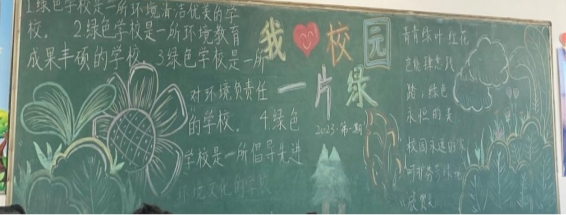 1绿色学校是一所环境清洁优美的学
校。 2绿色学校是一所环境教育
成果丰硕的学校 3绿色学校是一所
对环境负责任
的学校. 4.绿色
学校是一所倡导先进
环境文化的学校
我 校园
一片绿
2023·第一期
青青绿叶 红花
踏 绿色
永恒的美
校园永远的家